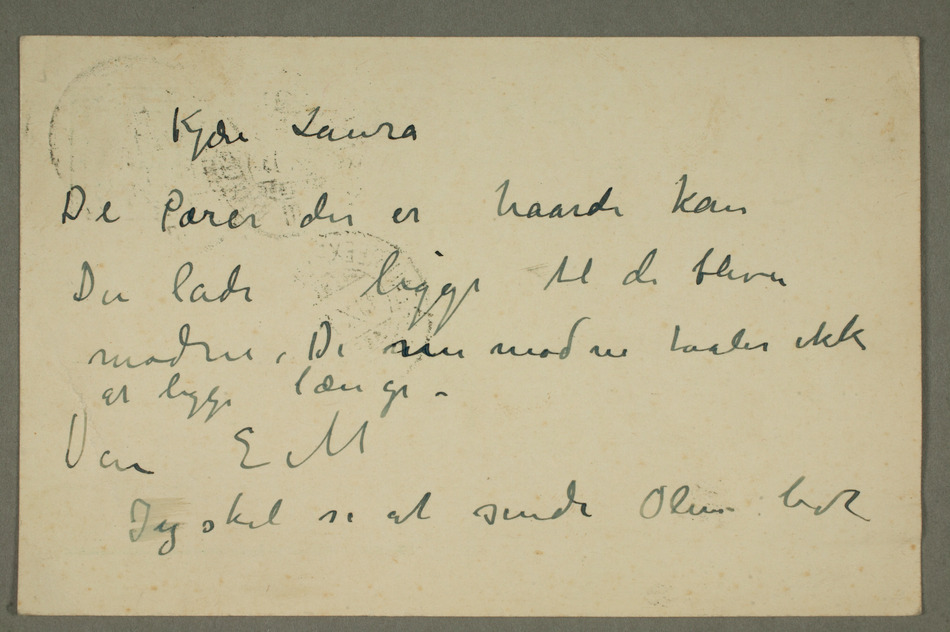 Kjære Laura
De Pærer der er haarde kan
Du lade ligge til de bliver
modne. De mere modne taaler ikke
at ligge længe.
Din E M
Jeg skal se at sende Olene lidt